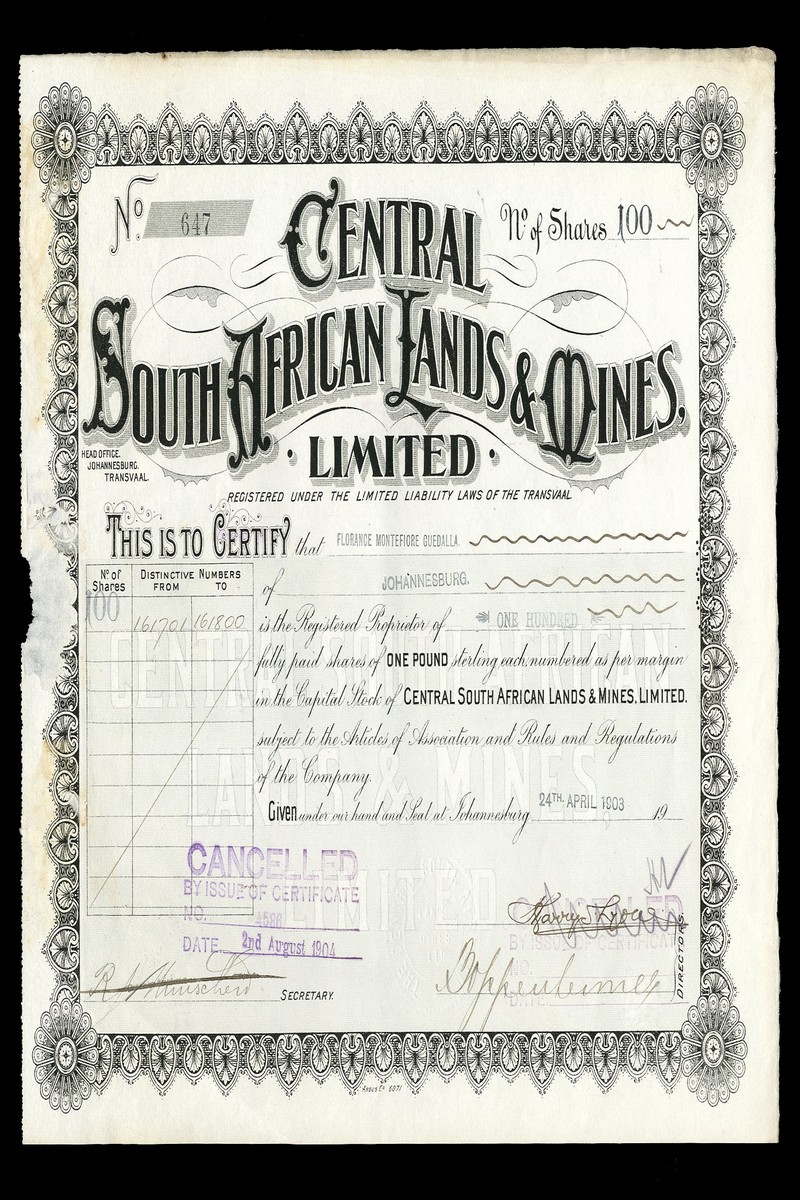 No. 647
No. of Shares 100
CENTRAL
SOUTH AFRICAN LANDS & MINES,
LIMITED
HEAD OFFICE.
JOHANNESBURG.
TRANSVAAL.
REGISTERED UNDER THE LIMITED LIABILITY LAWS OF THE TRANSVAAL
THIS IS TO CERTIFY that FLORANCE MONTEFIORE GUEDALLA.
of JOHANNESBURG.
No. of Shares
DISTINCTIVE NUMBERS
FROM TO
100 161701 161800
is the Registered Proprietor of ONE HUNDRED
fully paid shares of ONE POUND sterling each, numbered as per margin
in the Capital Stock of CENTRAL SOUTH AFRICAN LANDS & MINES, LIMITED.
subject to the Articles of Association and Rules and Regulations
of the Company.
Given under our hand and Seal at Johannesburg 24TH. APRIL 1903 19
CENTRAL SOUTH AFRICAN
LANDS & MINES,
LIMITED
CANCELLED
BY ISSUE OF CERTIFICATE
NO. 4586
DATE 2nd August 1904
CANCELLED
BY ISSUE OF CERTIFICATE
NO.
DATE
DIRECTORS.
SECRETARY.